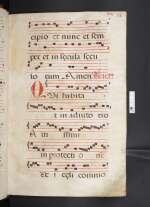 cipio et nunc et sem
per et in secula secu
lorum. Amen.
Qui habita
t in adiuto rio
Altissimi
in protecti o ne
de i celi commo